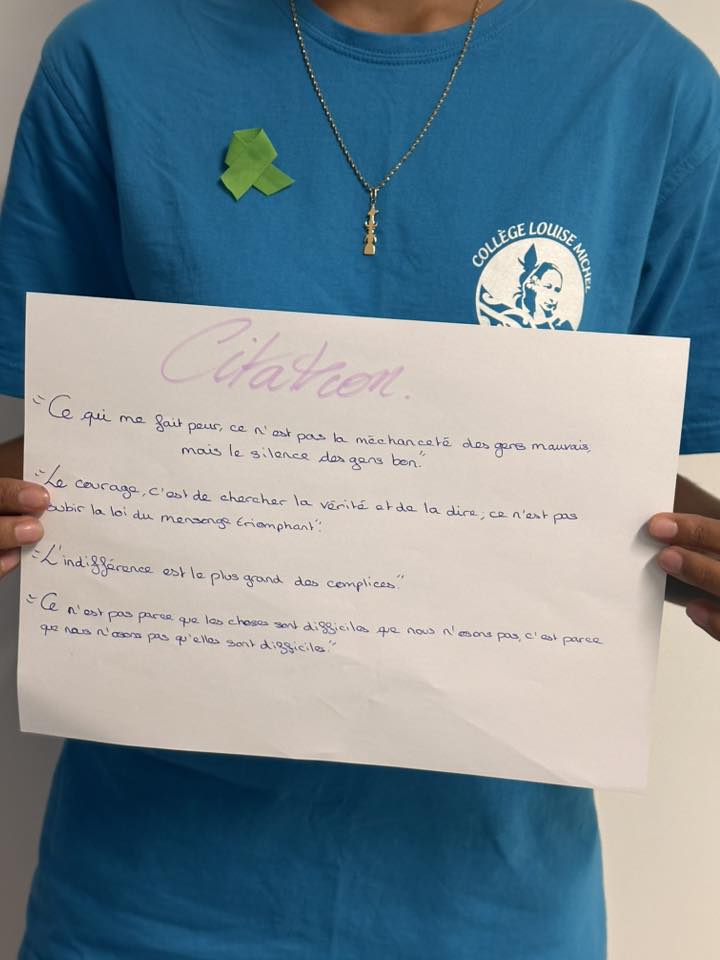 COLLÈGE LOUISE MICHEL
Citation.
"Ce qui me fait peur, ce n'est pas la méchanceté des gens mauvais,
mais le silence des gens bon."
"Le courage, c'est de chercher la vérité et de la dire; ce n'est pas
subir la loi du mensonge triomphant".
"L'indifférence est le plus grand des complices."
"Ce n'est pas parce que les choses sont difficiles que nous n'osons pas, c'est parce
que nous n'osons pas qu'elles sont difficiles."